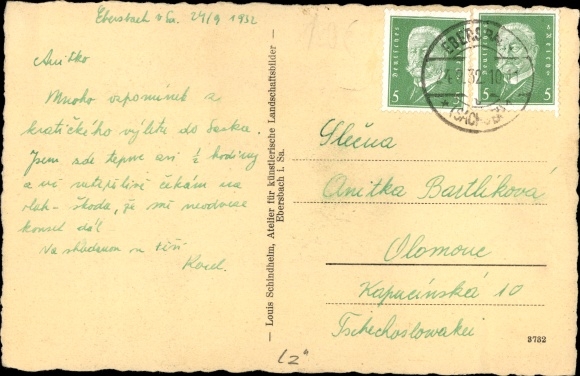 Ebersbach i/Sa. 24/9 1932
Anitko
Mnoho vzpomínek z
kratičkého výletu do Saska.
Jsem zde teprve asi ½ hodiny
a už netrpělivě čekám na
vlak - škoda, že mě
dál!
Na shledanou se těší
Karel.
Louis Schindhelm, Atelier für künstlerische Landschaftsbilder
Ebersbach i. Sa.
Deutsches Reich
5 5
5 5
EBERSBACH
(SACHSEN)
Slečna
Anitka Bartlíková
Olomouc
Kapucínská 10
Tschechoslowakei
3732